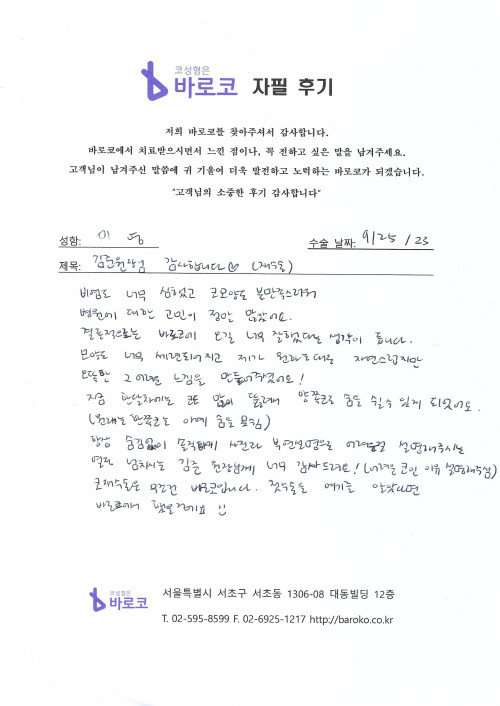 코성형은
바로코 자필 후기
저희 바로코를 찾아주셔서 감사합니다.
바로코에서 치료받으시면서 느낀 점이나, 꼭 전하고 싶은 말을 남겨주세요.
고객님이 남겨주신 말씀에 귀 기울여 더욱 발전하고 노력하는 바로코가 되겠습니다.
"고객님의 소중한 후기 감사합니다"
성함: 이 수술 날짜: 9/25 / 23
제목: 김준원장님 감사합니다♡ (재수술)
비염도 너무 심했고 코모양도 불만족스러워
병원에 대한 고민이 정말 많았어요.
결론적으로는 바로코에 오길 너무 잘했다는 생각이 듭니다.
모양도 너무 세련되어지고 제가 원하는대로 자연스럽지만
오똑한 그 어려운 느낌을 만들어주셨어요!
지금 한달차에는 코도 많이 뚫려서 양쪽으로 숨을 쉴수 있게 되었어요.
(원래는 한쪽코는 아예 숨을 못쉼)
항상 숨김없이 솔직하게 사전과 부연설명을 설명해주시는
열정 넘치시는 김준 원장님께 너무 감사드려요! (어려운 코인 이유 설명해주심)
코재수술은 무조건 바로코입니다. 첫수술도 여기를 알았다면
바로코에서 했을거에요
코성형은
바로코
서울특별시 서초구 서초동 1306-08 대동빌딩 12층
T. 02-595-8599 F. 02-6925-1217 http://baroko.co.kr